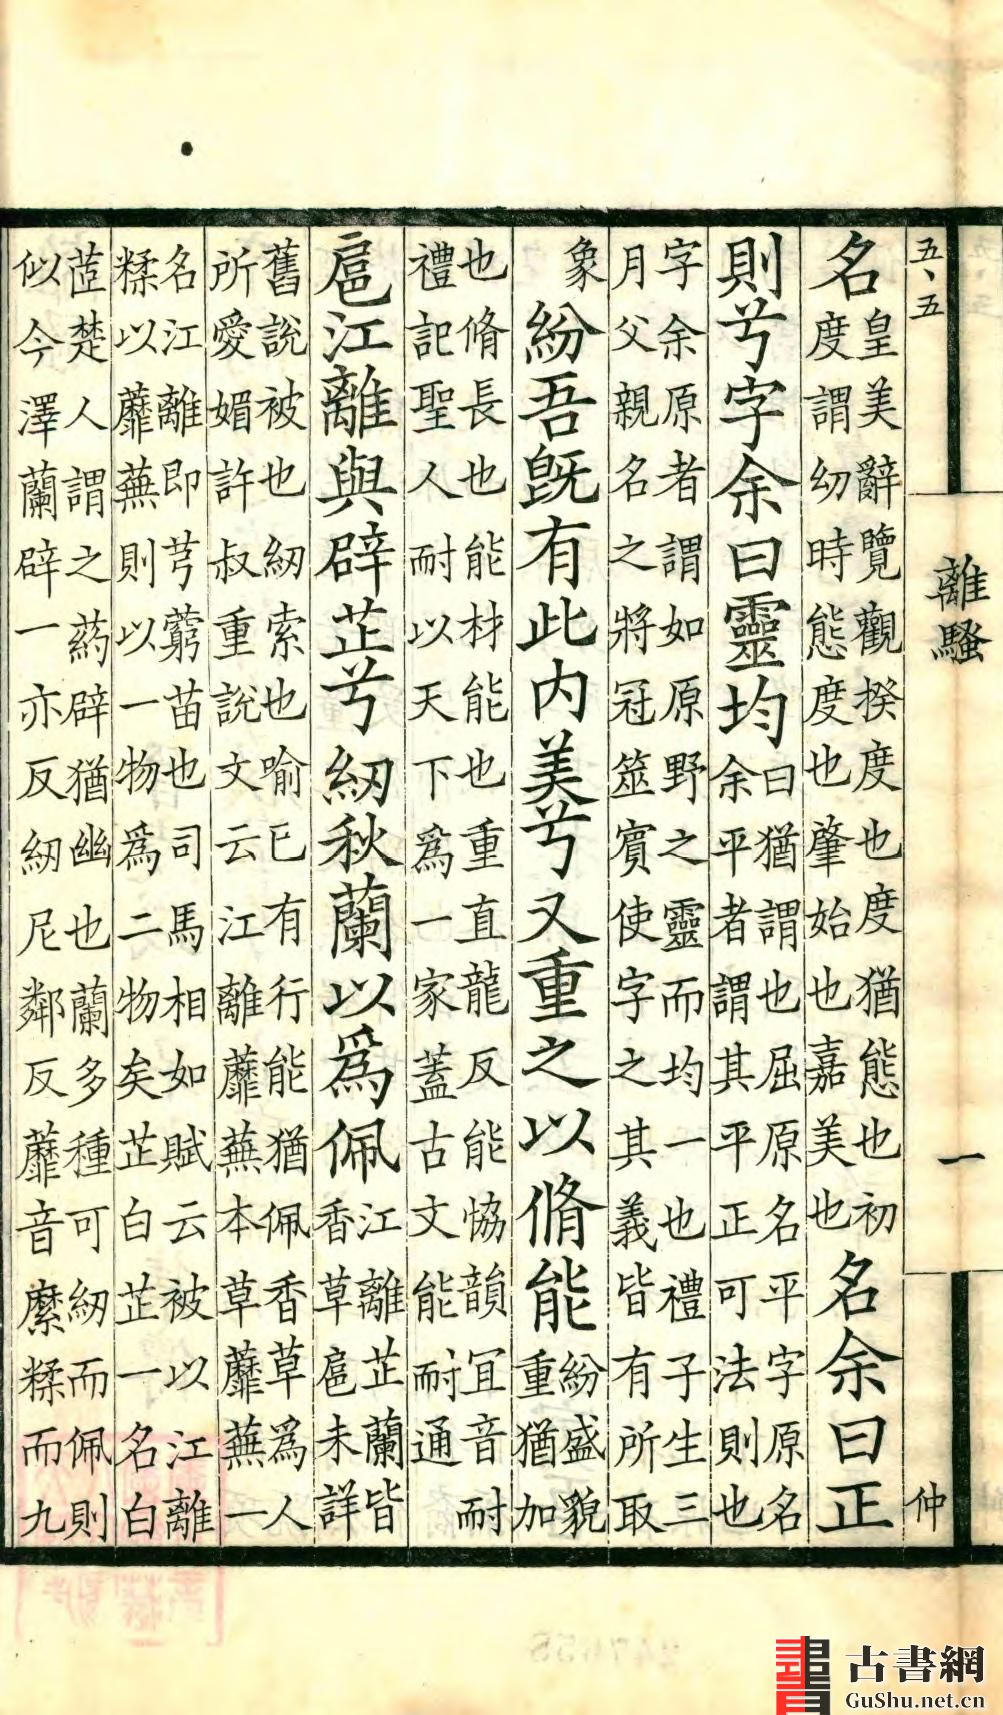 五、五
離騷
一
仲
名
皇美辭覽觀揆度也度猶態也初
度謂幼時態度也肇始也嘉美也
名余曰正
則兮字余曰靈均
曰猶謂也屈原名平字原名
余平者謂其平正可法則也
字余原者謂如原野之靈而均一也禮子生三
月父親名之將冠筮賓使字之其義皆有所取
象
紛吾旣有此内美兮又重之以脩能
紛盛貌
重猶加
也脩長也能材能也重直龍反能恊韻冝音耐
禮記聖人耐以天下爲一家蓋古文能耐通
扈江離與辟芷兮紉秋蘭以爲佩
江離芷蘭皆
香草扈未詳
舊說被也紉索也喻已有行能猶佩香草爲人
所愛媚許叔重說文云江離蘼蕪本草蘼蕪一
名江離即芎藭苗也司馬相如賦云被以江離
糅以蘼蕪則以一物爲二物矣芷白芷一名白
茝楚人謂之葯辟猶幽也蘭多種可紉而佩則
似今澤蘭辟一亦反紉尼鄰反蘼音縻糅而九
247658
古書網
GuShu.net.cn